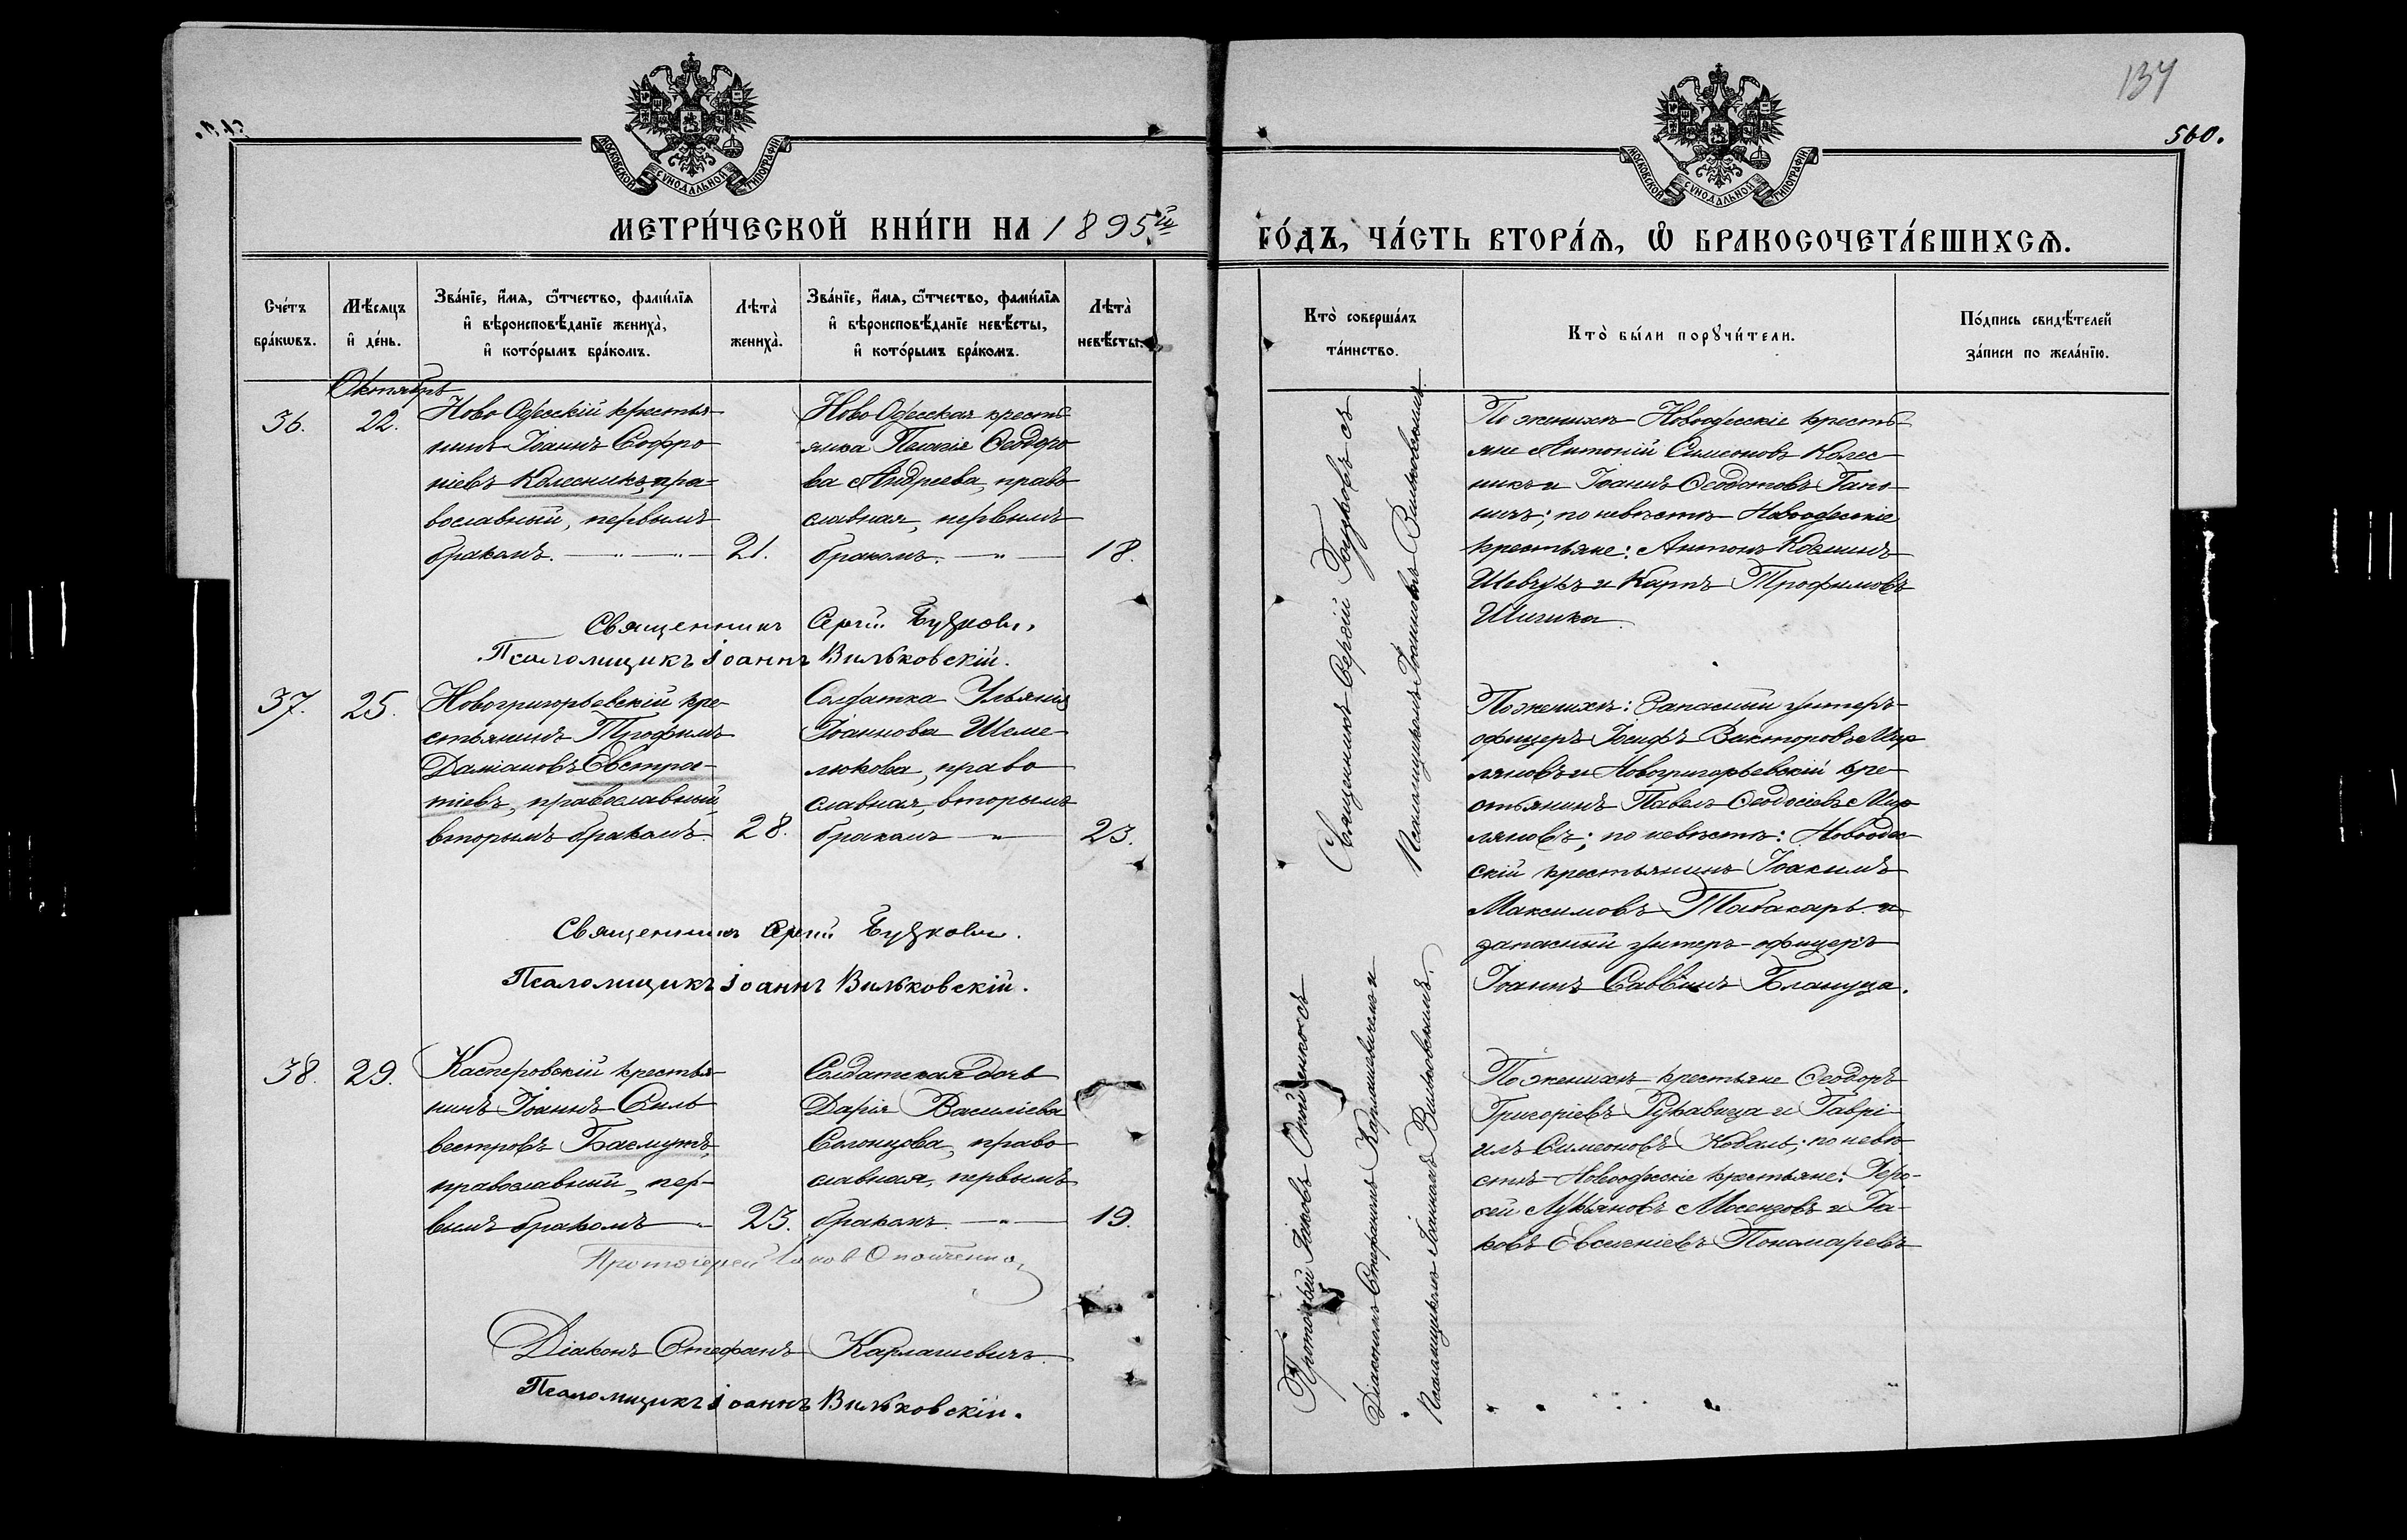 137
560.
МОСКОВСКОЙ СѴНОДАЛЬНОЙ ТИПОГРАФІИ
МОСКОВСКОЙ СѴНОДАЛЬНОЙ ТИПОГРАФІИ
МЕТРИ́ЧЕСКОЙ КНИ́ГИ НА 1895й
ГО́ДЪ, ЧА́СТЬ ВТОРА́Ѧ, Ѽ БРАКОСОЧЕТА́ВШИХСѦ.
Сче́тъ
бра́кѡвъ.
Мѣ́сяцъ
и҆ де́нь.
Зва́нїе, и҆́мѧ, ѻ҆́тчество, фами́лїѧ
и҆ вѣроисповѣ́данїе жениха̀,
и҆ кото́рымъ бра́комъ.
Лѣта̀
жениха̀.
Зва́нїе, и҆́мѧ, ѻ҆́тчество, фами́лїѧ
и҆ вѣроисповѣ́данїе невѣ́сты,
и҆ кото́рымъ бра́комъ.
Лѣта̀
невѣ́сты.
Кто̀ соверша́лъ
та́инство.
Кто̀ бы́ли порꙋчи́тели.
По́дпись свидѣ́телей
за́писи по жела́нїю.
Октябрь
36.
22.
Ново Одесскій крестья-
нинъ Іоаннъ Софро
ніевъ Колесникъ, пра-
вославный, первымъ
бракомъ.
21.
Ново Одесская кресть-
янка Пелагія Ѳеодоро
ва Андреева, право
славная, первымъ
бракомъ.
18.
Священникъ Сергій Гуцковъ съ
Псаломщикомъ Іоанномъ Вильковскимъ.
По женихѣ Новоодесскіе кресть-
яне Антоній Симеоновъ Колес-
никъ и Іоаннъ Ѳеодотовъ Гапо-
ничъ; по невѣстѣ Новоодесскіе
крестьяне: Антонъ Косминъ
Шевчукъ и Карпъ Трофимовъ
Шигика.
Священникъ Сергій
Псаломщикъ Іоаннъ Вильковскій.
37.
25.
Новогригорьевскій кре-
стьянинъ Трофимъ
Даміановъ Евстра-
тіевъ, православный,
вторымъ бракомъ.
28.
Солдатка Ульянія
Іоаннова Шеме-
люкова, право
славная, вторымъ
бракомъ
23.
По женихѣ: Запасный унтеръ-
офицеръ Іосифъ Викторовъ Мир
ляновъ и Новогригорьевскій кре-
стьянинъ Павелъ Ѳеодосіевъ Мир
ляновъ; по невѣстѣ: Новоодес-
скій крестьянинъ Іоакимъ
Максимовъ Табакарь и
запасный унтеръ-офицеръ
Іоаннъ Саввинъ Блануца.
Священникъ Сергій
Псаломщикъ Іоаннъ Вильковскій.
38.
29.
Касперовскій крестья-
нинъ Іоаннъ Силь
вестровъ Басмутъ,
православный, пер-
вымъ бракомъ
23.
Солдатская дочь
Дарія Василіева
Солонцова, право
славная, первымъ
бракомъ
19.
Протоіерей Іаковъ съ
Діакономъ Стефаномъ Карлашевичемъ и
Псаломщикомъ Іоанномъ Вильковскимъ.
По женихѣ крестьяне Ѳеодоръ
Григоріевъ Рукавица и Гаврі-
илъ Симеоновъ Коваль; по невѣ
стѣ Новоодесскіе крестьяне: Іеро-
ѳей Лукьяновъ Мосенцовъ и Іа-
ковъ Евсевіевъ Пономаревъ
Протоіерей Іаковъ
Діаконъ Стефанъ Карлашевичъ.
Псаломщикъ Іоаннъ Вильковскій.